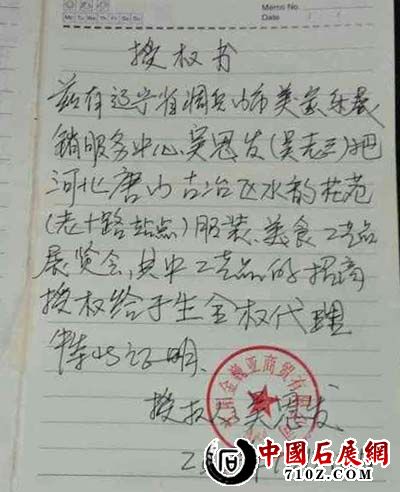 Memo No.
Mo Tu We Th Fr Sa Su
Date
授权书
兹有辽宁省调兵山市美家乐展
销服务中心吴恩发(吴老三)把
河北唐山古冶区水韵花苑
(老十路站点)服装、美食、工艺品
展览会,其中工艺品的招商
授权给于生全权代理
特此证明.
授权人 吴恩发
金巍亚商贸有限
2
中国石展網
710Z.COM